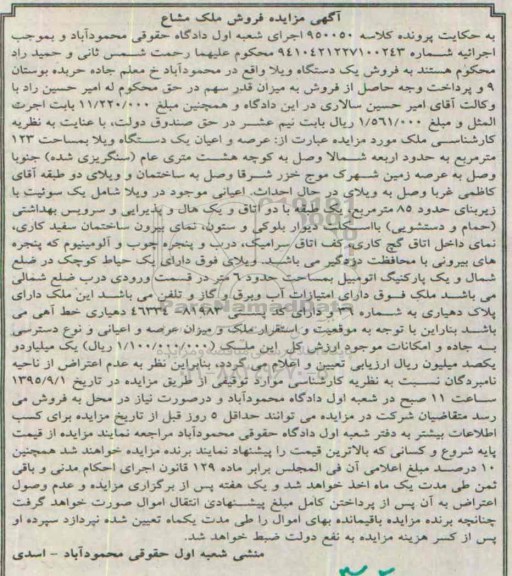 آگهی مزایده فروش ملک مشاع
به حکایت پرونده کلاسه ۹۵۰۰۵۰ اجرای شعبه اول دادگاه حقوقی محمودآباد و بموجب
اجرائیه شماره ۹۴۱۰۴۲۱۲۲۷۱۰۰۲۴۳ محکوم علیهما رحمت شمس ثانی و حمید راد
محکوم هستند به فروش یک دستگاه ویلا واقع در محمودآباد خ معلم جاده حربده بوستان
۹ و پرداخت وجه حاصل از فروش به میزان قدر سهم در حق محکوم له امیر حسین راد با
وکالت آقای امیر حسین سالاری در این دادگاه و همچنین مبلغ ۱۱/۲۲۰/۰۰۰ بابت اجرت
المثل و مبلغ ۱/۵۶۱/۰۰۰ ریال بابت نیم عشر در حق صندوق دولت، با عنایت به نظریه
کارشناسی ملک مورد مزایده عبارت از: عرصه و اعیان یک دستگاه ویلا بمساحت ۱۲۳
مترمربع به حدود اربعه شمالا وصل به کوچه هشت متری عام (سنگریزی شده) جنوبا
وصل به عرصه زمین شهرک موج خزر شرقا وصل به ساختمان و ویلای دو طبقه آقای
کاظمی غربا وصل به ویلای در حال احداث. اعیانی موجود در ویلا شامل یک سوئیت با
زیربنای حدود ۸۵ مترمربع، یک طبقه با دو اتاق و یک هال و پذیرایی و سرویس بهداشتی
(حمام و دستشویی) بااسکلت دیوار بلوکی و ستون، نمای بیرون ساختمان سفید کاری،
نمای داخل اتاق گچ کاری، کف اتاق سرامیک، درب و پنجره چوب و آلومینیوم که پنجره
های بیرونی با محافظت دزدگیر می باشند. ویلای فوق دارای یک حیاط کوچک در ضلع
شمال و یک پارکینگ اتومبیل بمساحت حدود ۶ متر در قسمت ورودی درب ضلع شمالی
می باشد ملک فوق دارای امتیازات آب وبرق و گاز و تلفن می باشد این ملک دارای
پلاک دهیاری به شماره ۱۰۳۶ دارای ۴۶۳۳۴ دهیاری خط آهی می
باشد بنابراین با توجه به موقعیت و استقرار ملک و میزان عرصه و اعیانی و نوع دسترسی
به جاده و امکانات موجود ارزش کل این ملک (۱/۱۰۰/۰۰۰/۰۰۰ ریال) یک میلیاردو
یکصد میلیون ریال ارزیابی تعیین و اعلام می گردد، بنابراین نظر به عدم اعتراض از ناحیه
نامبردگان نسبت به نظریه کارشناسی موارد توقیفی از طریق مزایده در تاریخ ۱۳۹۵/۹/۱
ساعت ۱۱ صبح در شعبه اول دادگاه محمودآباد و درصورت نیاز در محل به فروش می
رسد متقاضیان شرکت در مزایده می توانند حداقل ۵ روز قبل از تاریخ مزایده برای کسب
اطلاعات بیشتر به دفتر شعبه اول دادگاه حقوقی محمودآباد مراجعه نمایند مزایده از قیمت
پایه شروع و کسانی که بالاترین قیمت را پیشنهاد نمایند برنده مزایده خواهند شد همچنین
۱۰ درصد مبلغ اعلامی آن فی المجلس برابر ماده ۱۲۹ قانون اجرای احکام مدنی و باقی
ثمن طی مدت یک ماه اخذ خواهد شد و یک هفته پس از برگزاری مزایده و عدم وصول
اعتراض به آن پس از پرداختن کامل مبلغ پیشنهادی انتقال اموال صورت خواهد گرفت
چنانچه برنده مزایده باقیمانده بهای اموال را طی مدت یکماه تعیین شده نپردازد سپرده او
پس از کسر هزینه مزایده به نفع دولت ضبط خواهد شد.
منشی شعبه اول حقوقی محمودآباد - اسدی